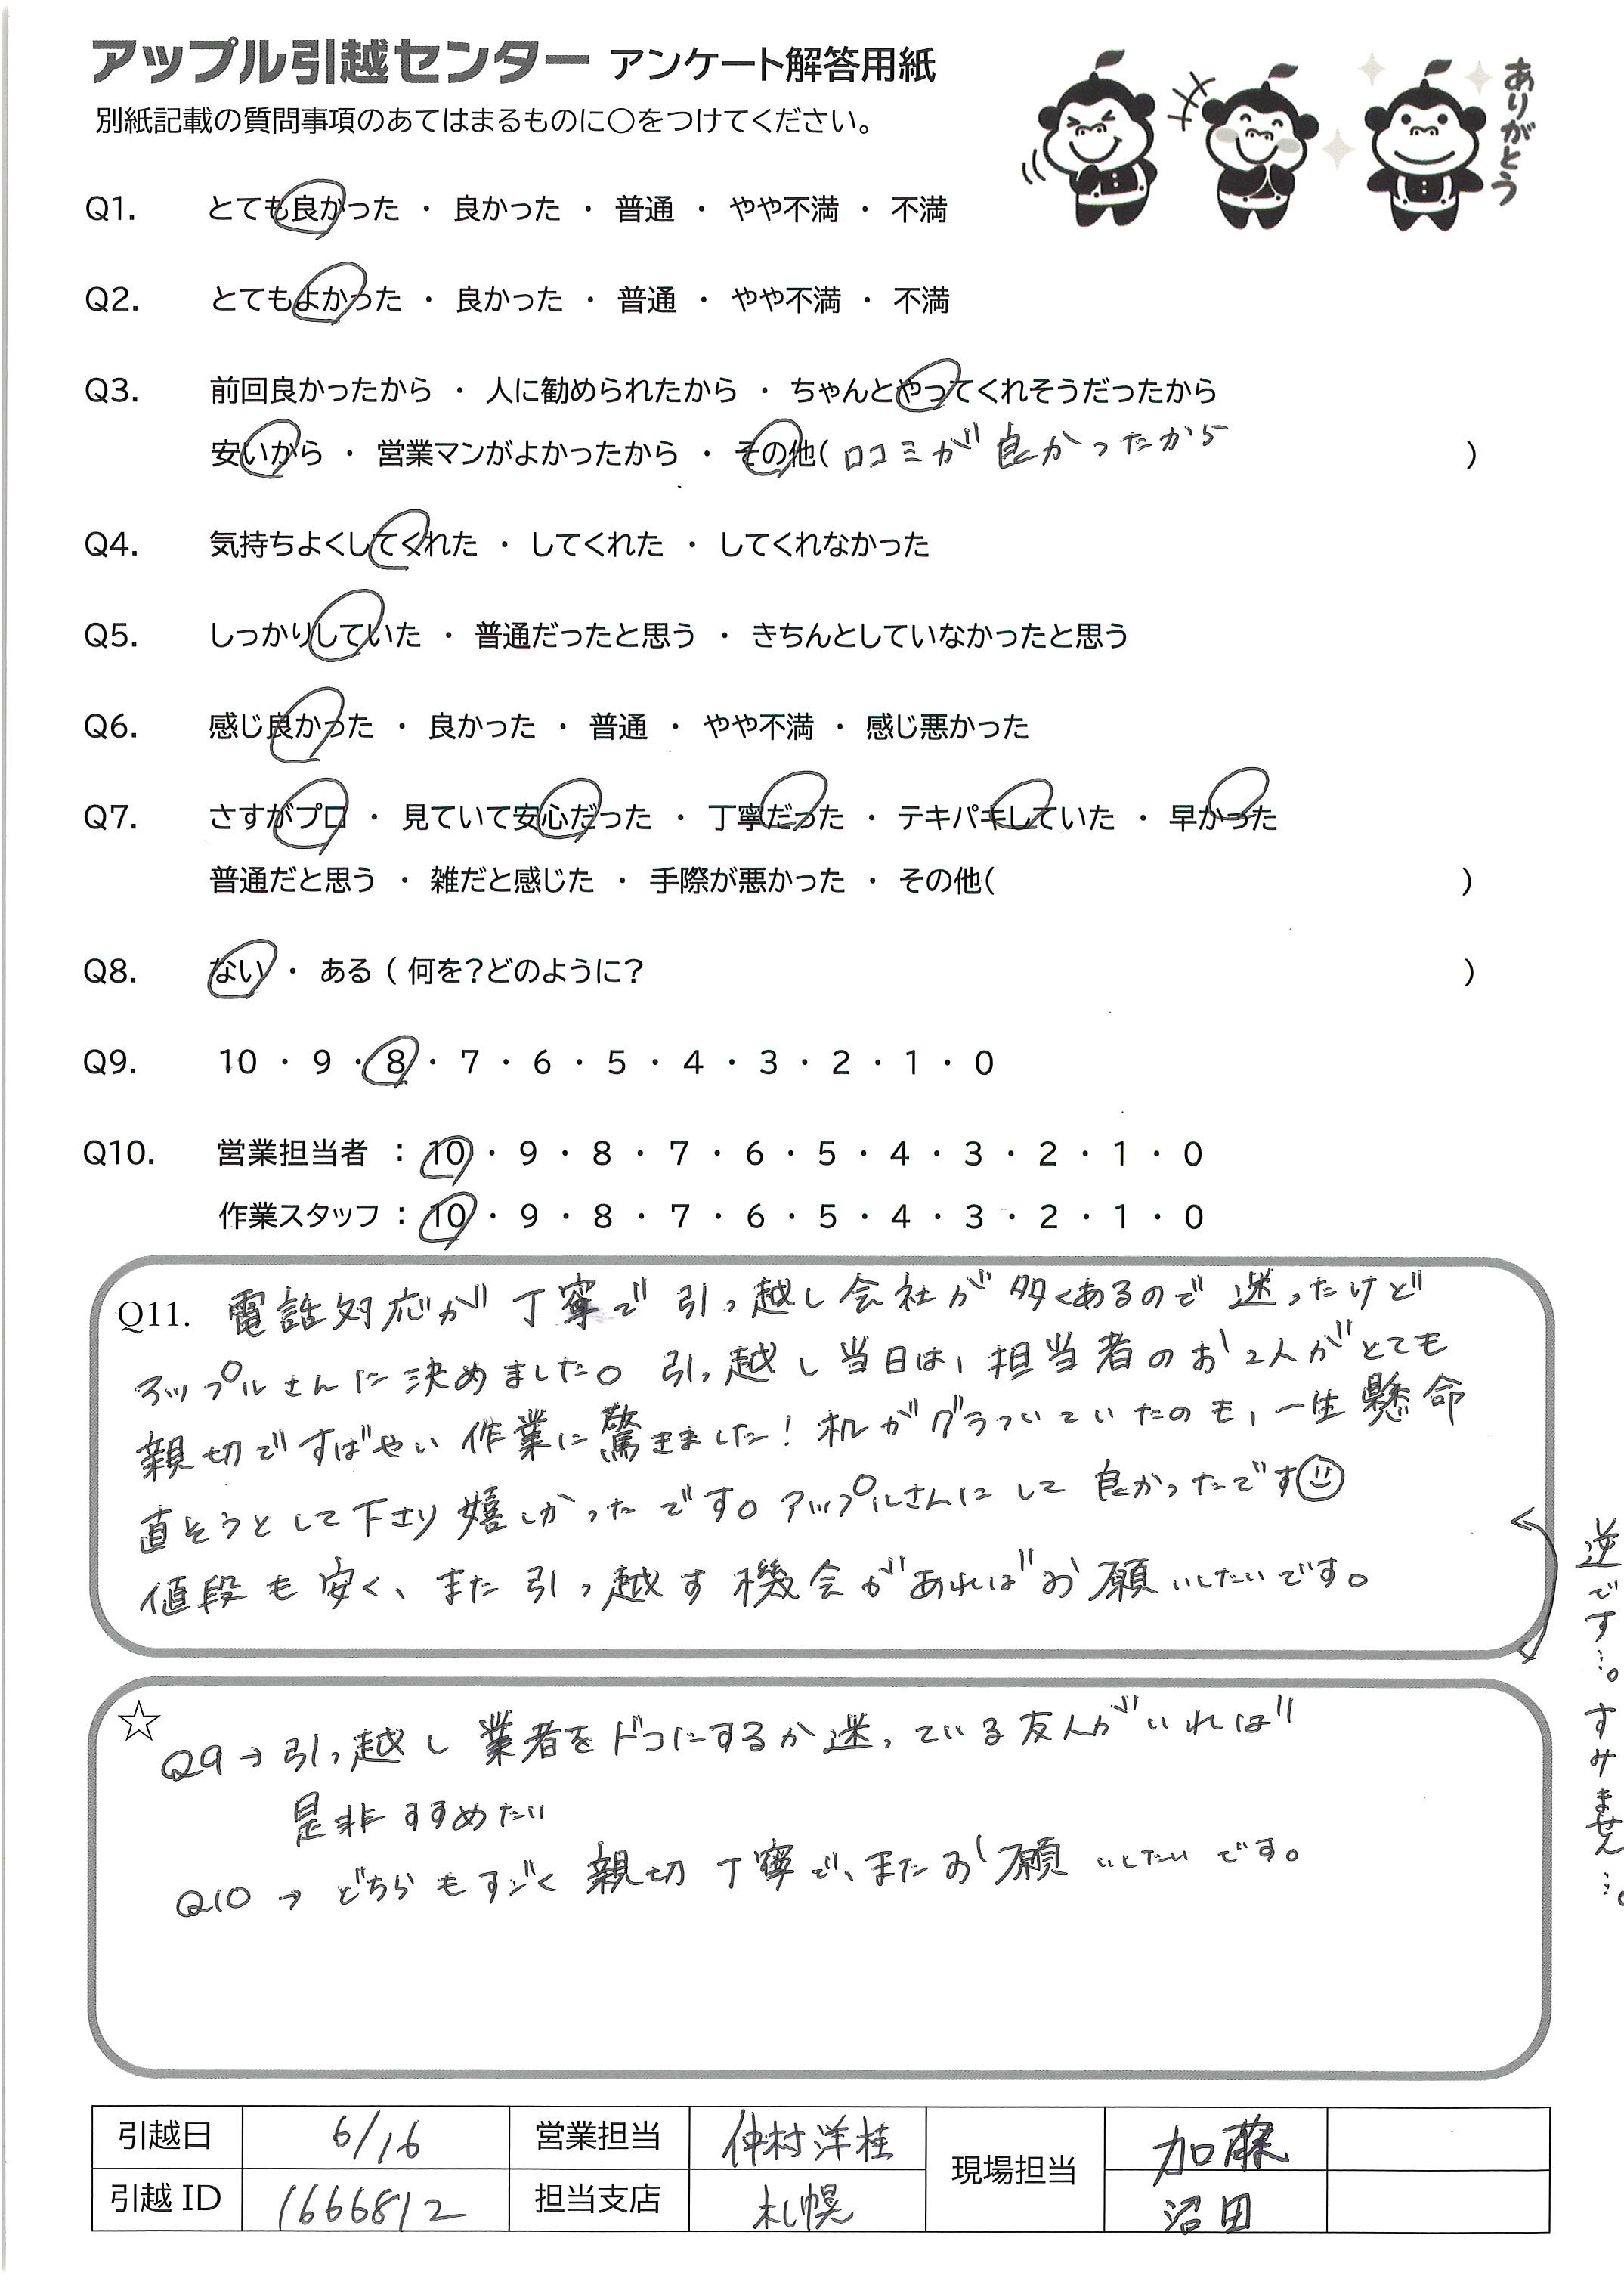 アップル引越センター アンケート解答用紙
ありがとう
別紙記載の質問事項のあてはまるものに○をつけてください。
Q1. とても良かった ・ 良かった ・ 普通 ・ やや不満 ・ 不満
Q2. とてもよかった ・ 良かった ・ 普通 ・ やや不満 ・ 不満
Q3. 前回良かったから ・ 人に勧められたから ・ ちゃんとやってくれそうだったから
安いから ・ 営業マンがよかったから ・ その他( 口コミが良かったから )
Q4. 気持ちよくしてくれた ・ してくれた ・ してくれなかった
Q5. しっかりしていた ・ 普通だったと思う ・ きちんとしていなかったと思う
Q6. 感じ良かった ・ 良かった ・ 普通 ・ やや不満 ・ 感じ悪かった
Q7. さすがプロ ・ 見ていて安心だった ・ 丁寧だった ・ テキパキしていた ・ 早かった
普通だと思う ・ 雑だと感じた ・ 手際が悪かった ・ その他( )
Q8. ない ・ ある ( 何を?どのように? )
Q9. 10 ・ 9 ・ 8 ・ 7 ・ 6 ・ 5 ・ 4 ・ 3 ・ 2 ・ 1 ・ 0
Q10. 営業担当者 : 10 ・ 9 ・ 8 ・ 7 ・ 6 ・ 5 ・ 4 ・ 3 ・ 2 ・ 1 ・ 0
作業スタッフ : 10 ・ 9 ・ 8 ・ 7 ・ 6 ・ 5 ・ 4 ・ 3 ・ 2 ・ 1 ・ 0
Q11. 電話対応が丁寧で引っ越し会社が多くあるので迷ったけど
アップルさんに決めました。引っ越し当日は、担当者のお2人がとても
親切ですばやい作業に驚きました!机がグラついていたのも、一生懸命
直そうとして下さり嬉しかったです。アップルさんにして良かったです☺
値段も安く、また引っ越す機会があればお願いしたいです。
逆です…。すみません…。
☆
Q9→引っ越し業者をドコにするか迷っている友人がいれば
是非すすめたい
Q10→どちらもすごく親切丁寧で、またお願いしたいです。
引越日 6/16 営業担当 仲村洋桂 現場担当 加藤
引越ID 1666812 担当支店 札幌 沼田